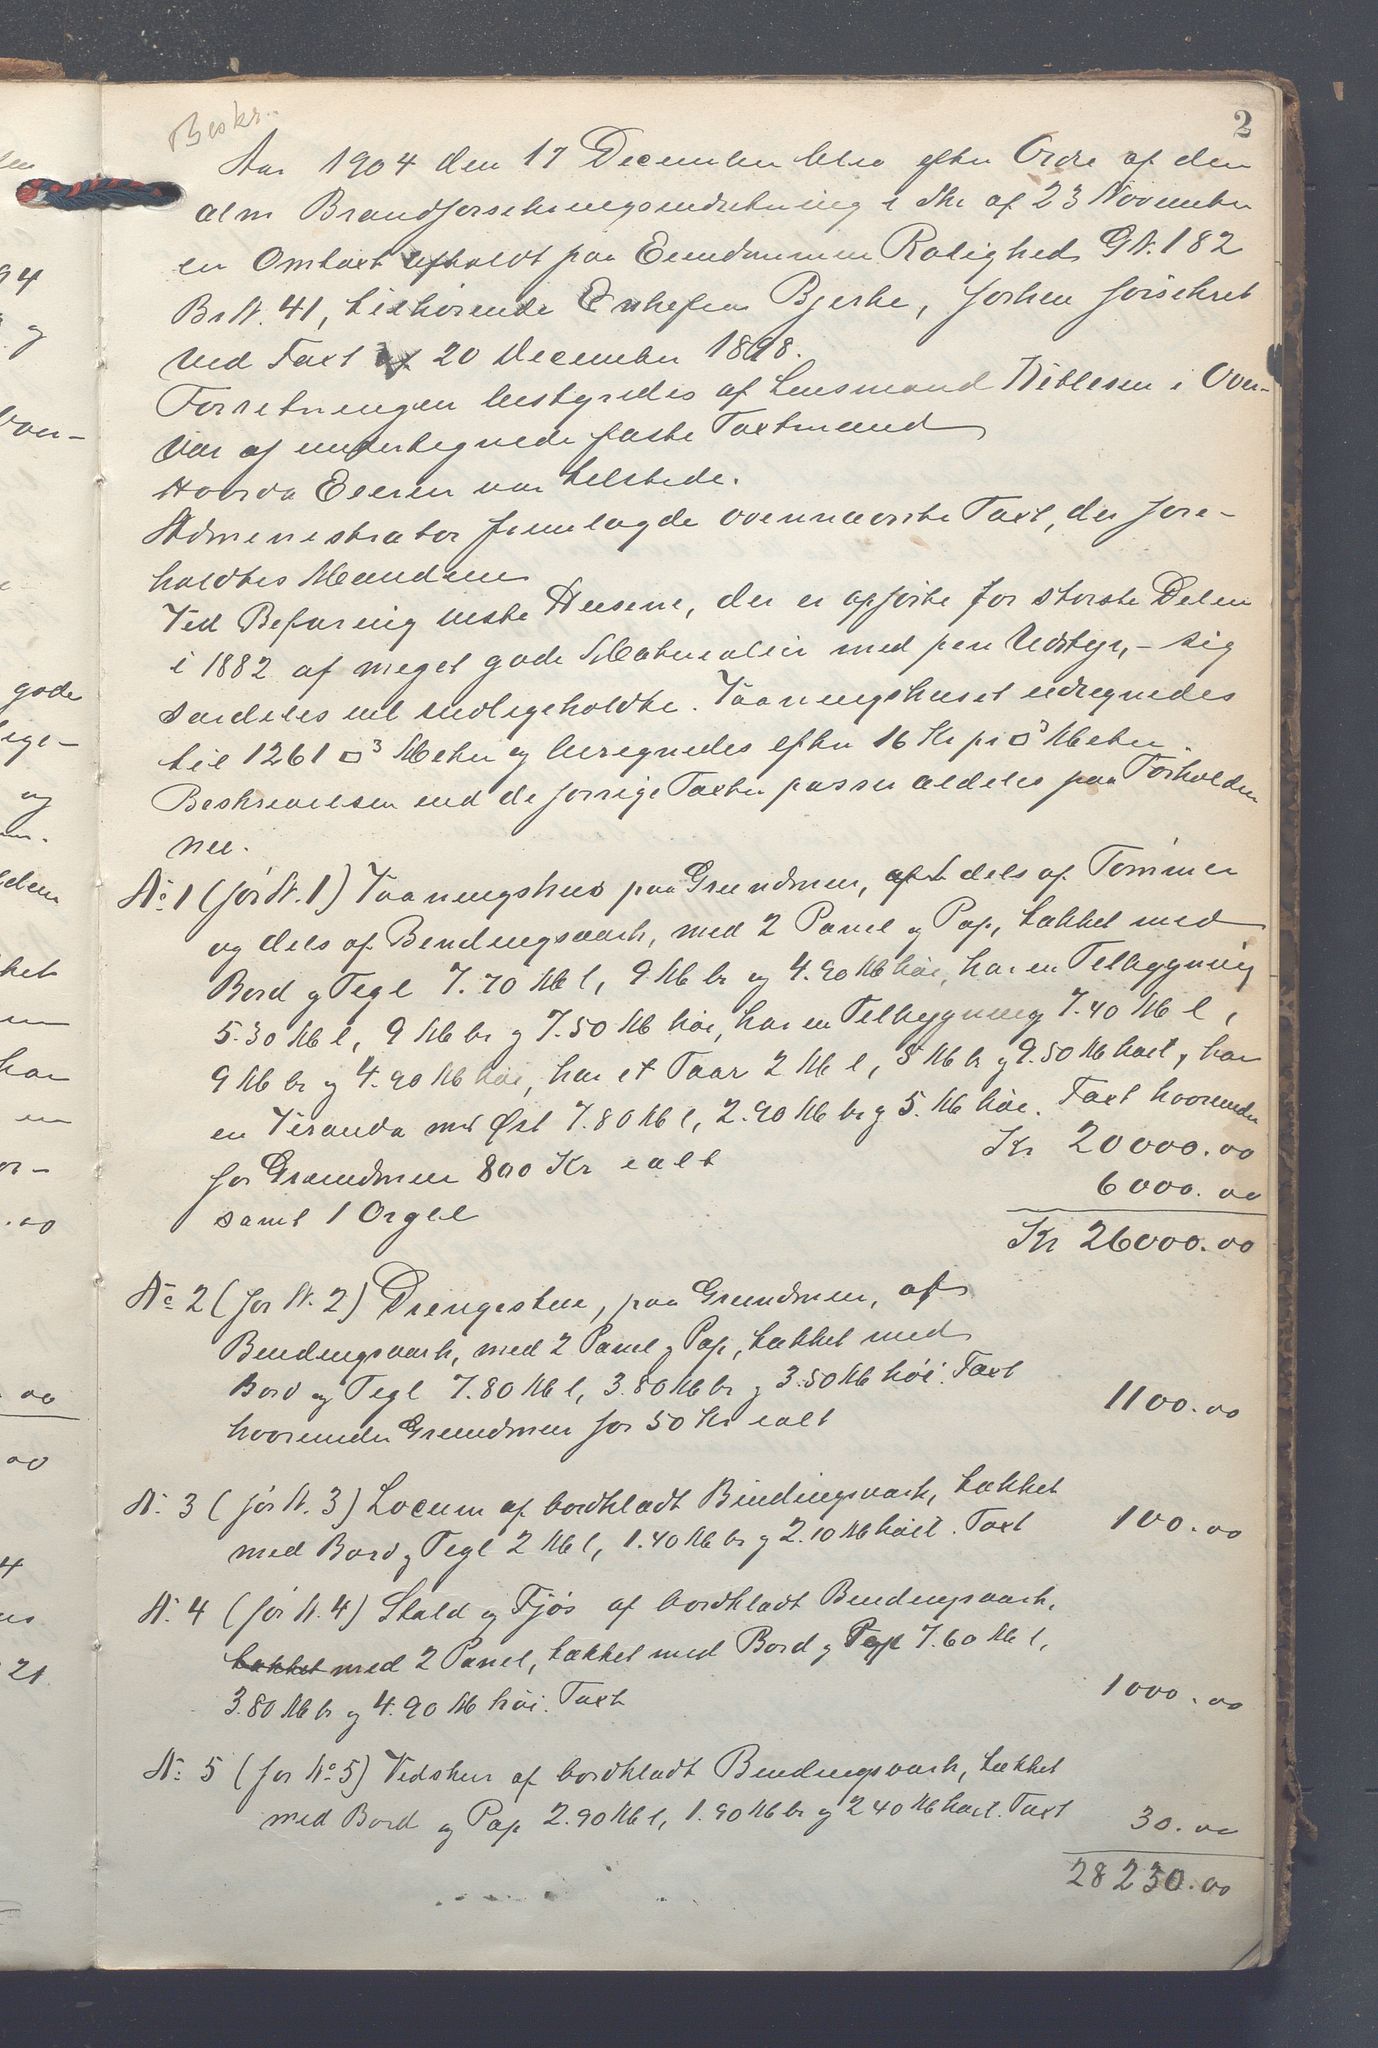 2
Beskr.
Aar 1904 den 17 December blev efter Ordre af den
alm Brandforsikringsindretning i Skr af 23 November
en Omtaxt afholdt paa Eiendommen Rolighed GN. 182
BrN. 41, tilhørende Enkefru Bjerke, forhen forsikret
ved Taxt af 20 December 1898.
Forretningen bestyredes af Lensmand Kitlesen i Over-
vær af undertegnede faste Taxtmænd
Hvorda Eieren var tilstede.
Administrator fremlagde ovennævnte Taxt, der fore-
holdtes Mændene
Ved Befaring viste Husene, der er opførte for største Delen
i 1882 af meget gode Materialier med pen Udstyr, - sig
særdeles vel vedligeholdte. Vaaningshuset udregnedes
til 1261 □³ Meter og beregnedes efter 16 Kr pr □³ Meter.
Beskrivelsen ved de forrige Taxter passer aldeles paa Forholdene
nu.
No 1 (før N. 1) Vaaningshus paa Grundmur, dels af Tømmer
og dels af Bindingsværk, med 2 Panel og Pap, tækket med
Bord og Tegl 7.70 M l, 9 M br og 4.90 M høi, har en Tilbygning
5.30 M l, 9 M br og 7.50 M høi, har en Tilbygning 7.40 M l,
9 M br og 4.90 M høi, har et Taar 2 M l, 5 M br og 9.50 M høit, har
en Veranda mod Øst 7.80 M l, 2.90 M br og 5. M høi. Taxt hvorunder
for Grundmur 800 Kr ialt Kr 20000.00
samt 1 Orgel 6000.00
Kr 26000.00
No 2 (før N. 2) Drengestue, paa Grundmur, af
Bindingsværk, med 2 Panel og Pap, tækket med
Bord og Tegl 7.80 M l, 3.80 M br og 3.50 M høi. Taxt
hvorunder Grundmur for 50 Kr ialt 1100.00
N. 3 (før N. 3) Locum af bordklædt Bindingsværk, tækket
med Bord og Tegl 2 M l, 1.40 M br og 2.10 M høit. Taxt 100.00
N. 4 (før N. 4) Stald og Fjøs af bordklædt Bindingsværk,
tækket med 2 Panel, tækket med Bord og Tegl 7.60 M l,
3.80 M br og 4.90 M høi. Taxt 1000.00
No 5 (før No 5) Vedskur af bordklædt Bindingsværk, tækket
med Bord og Pap 2.90 M l, 1.90 M br og 2 40 M høit. Taxt 30.00
28 230.00